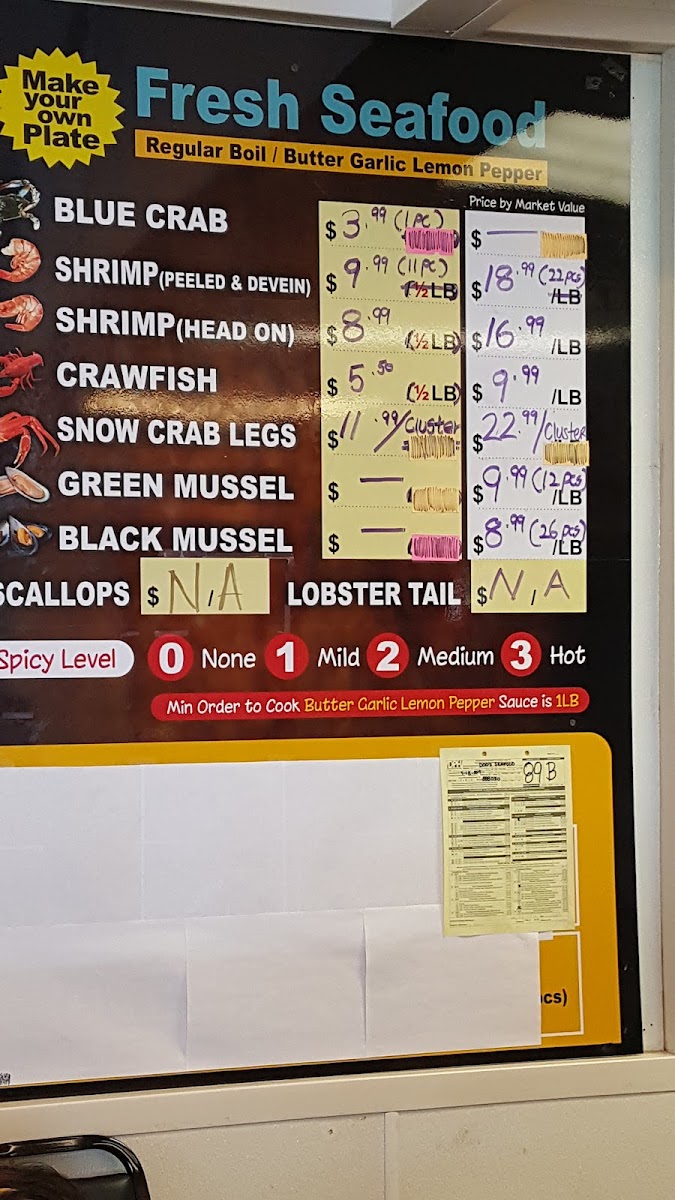 Make your own Plate
Fresh Seafood
Regular Boil / Butter Garlic Lemon Pepper
Price by Market Value
BLUE CRAB $3.99 (1PC) $ —
SHRIMP (PEELED & DEVEIN) $9.99 (11PC) (½LB) $18.99 (22pcs) /LB
SHRIMP (HEAD ON) $8.99 (½LB) $16.99 /LB
CRAWFISH $5.50 (½LB) $9.99 /LB
SNOW CRAB LEGS $11.99/Cluster $22.99/Cluster
GREEN MUSSEL $ — $9.99 (12pcs) /LB
BLACK MUSSEL $ — $8.99 (26pcs) /LB
SCALLOPS $N/A LOBSTER TAIL $N/A
Spicy Level 0 None 1 Mild 2 Medium 3 Hot
Min Order to Cook Butter Garlic Lemon Pepper Sauce is 1LB
89 B
cs)